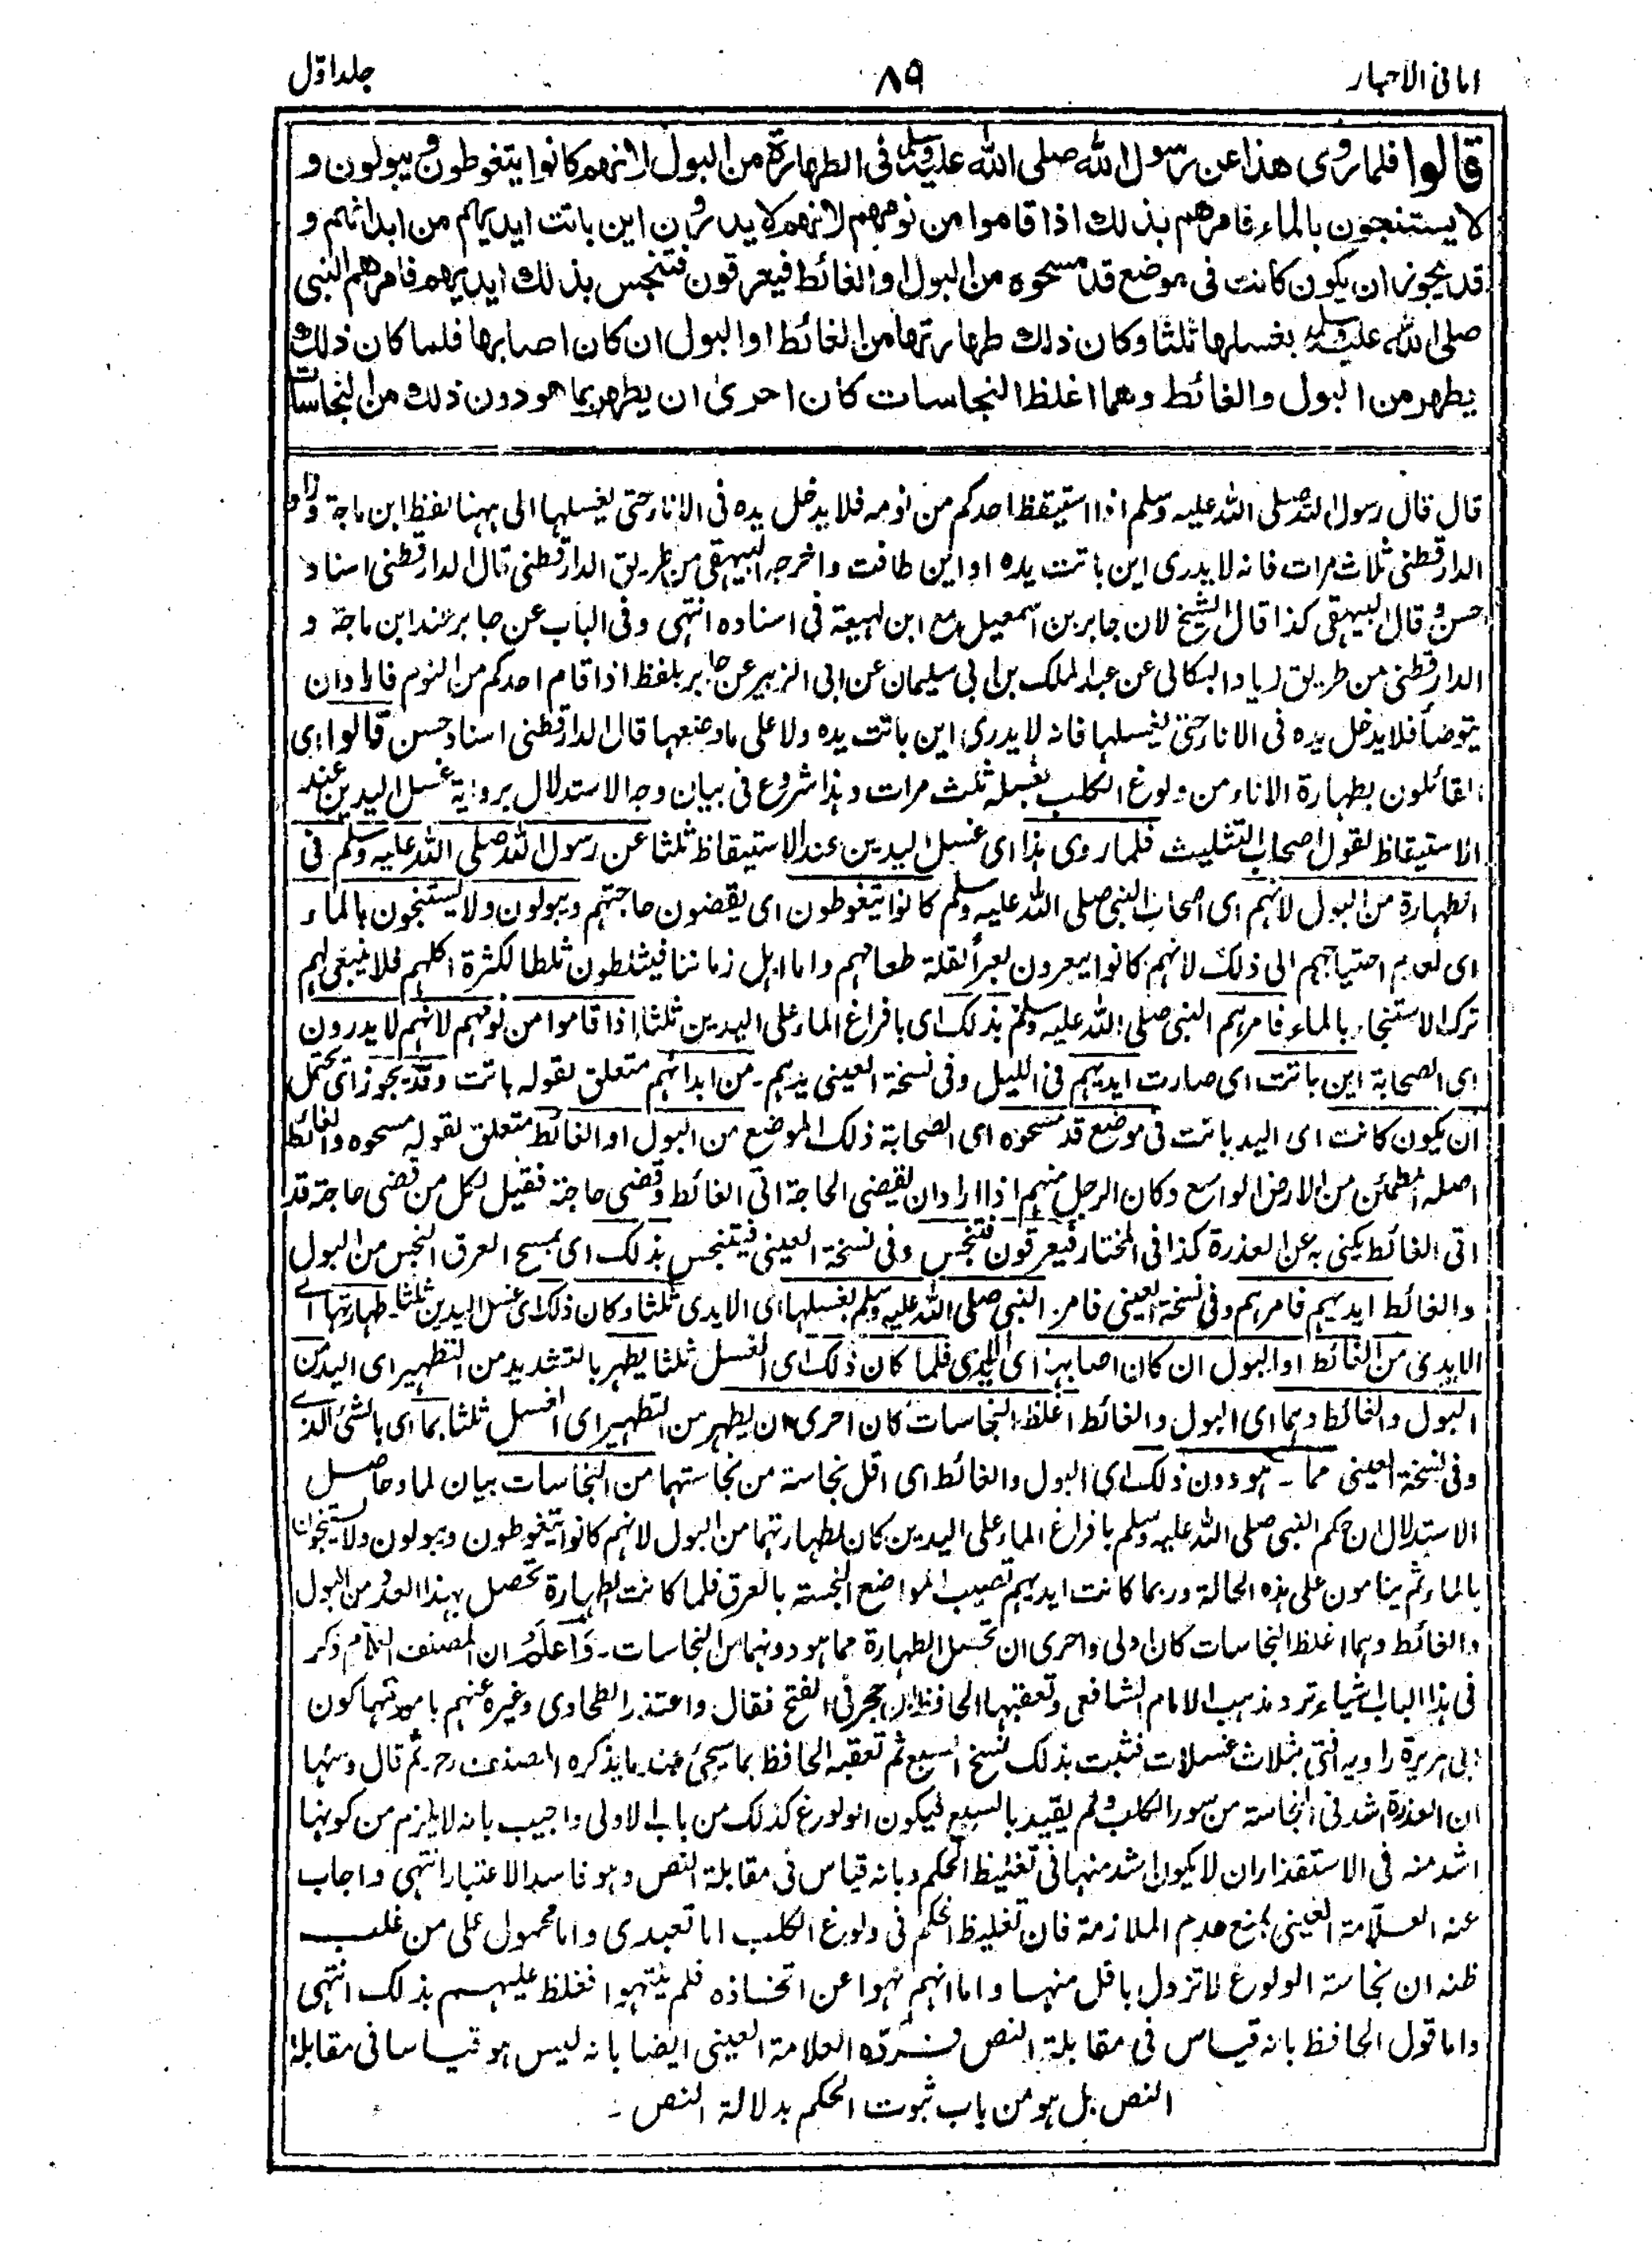 امانی الاحبار
۸۹
جلد اوّل
قالوا فلما روی هذا عن رسول الله صلی الله علیه وسلم فی الطهارة من البول لانهم کانوا یتغوطون ویبولون و
لا یستنجون بالماء فامرهم بذلك اذا قاموا من نومهم لانهم لا یدرون این باتت ایدیهم من ابدانهم و
قد یجوز ان یکون کانت فی موضع قد مسحوه من البول والغائط فیعرقون فتنجس بذلك ایدیهم فامرهم النبی
صلی الله علیه وسلم بغسلها ثلثا وکان ذلك طهارتها من الغائط او البول ان کان اصابها فلما کان ذلك
یطهر من البول والغائط وهما اغلظ النجاسات کان احری ان یطهر بما هو دون ذلك من النجاسات
قال قال رسول الله صلی الله علیه وسلم اذا استیقظ احدکم من نومه فلا یدخل یده فی الاناء حتی یغسلها الی ههنا لفظ ابن ماجة وزاد
الدارقطنی ثلاث مرات فانه لا یدری این باتت یده او این طافت واخرجه البیهقی من طریق الدارقطنی قال الدارقطنی اسناد
حسن وقال البیهقی کذا قال الشیخ لان جابر بن اسمعیل مع ابن لهیعة فی اسناده انتهی وفی الباب عن جابر عند ابن ماجة و
الدارقطنی من طریق زیاد البکالی عن عبد الملك بن ابی سلیمان عن ابی الزبیر عن جابر بلفظ اذا قام احدکم من النوم فاراد ان
یتوضأ فلا یدخل یده فی الاناء حتی یغسلها فانه لا یدری این باتت یده ولا علی ما وضعها قال الدارقطنی اسناد حسن قالوا ای
القائلون بطهارة الاناء من ولوغ الکلب بغسله ثلث مرات وهذا شروع فی بیان وجه الاستدلال بروایة غسل الیدین عند
الاستیقاظ لقول اصحاب التثلیث فلما روی هذا ای غسل الیدین عند الاستیقاظ ثلثا عن رسول الله صلی الله علیه وسلم فی
الطهارة من البول لانهم ای اصحاب النبی صلی الله علیه وسلم کانوا یتغوطون ای یقضون حاجتهم ویبولون ولا یستنجون بالماء
ای لعدم احتیاجهم الی ذلك لانهم کانوا یبعرون بعراً لقلة طعامهم واما اهل زماننا فیثلطون ثلطا لکثرة اکلهم فلا ینبغی لهم
ترك الاستنجاء بالماء فامرهم النبی صلی الله علیه وسلم بذلك ای بافراغ الماء علی الیدین ثلثا اذا قاموا من نومهم لانهم لا یدرون
ای الصحابة این باتت ای صارت ایدیهم فی اللیل وفی نسخة العینی یدهم۔ من ابدانهم متعلق لقوله باتت وقد یجوز ای یحتمل
ان یکون کانت ای الید باتت فی موضع قد مسحوه ای الصحابة ذلك الموضع من البول او الغائط متعلق لقوله مسحوه والغائط
اصله المطمئن من الارض الواسع وکان الرجل منهم اذا اراد ان یقضی الحاجة اتی الغائط وقضی حاجة فقیل لکل من قضی حاجة قد
اتی الغائط یکنی به عن العذرة کذا فی المختار فیعرقون فتنجس وفی نسخة العینی فیتنجس بذلك ای بمسح العرق النجس من البول
والغائط ایدیهم فامرهم وفی نسخة العینی فامر النبی صلی الله علیه وسلم بغسلها ای الایدی ثلثا وکان ذلك ای غسل الیدین ثلثا۔ طهارتها ای
الایدی من الغائط او البول ان کان اصابها ای الایدی فلما کان ذلك ای الغسل ثلثا یطهر بالتشدید من التطهیر ای الید من
البول والغائط وهما ای البول والغائط اغلظ النجاسات کان احری ان یطهر من التطهیر ای الغسل ثلثا بما ای بالشئ الذی
وفی نسخة العینی مما۔ هو دون ذلك ای البول والغائط ای اقل نجاسة من نجاستهما من النجاسات بیان لما وحاصل
الاستدلال ان حکم النبی صلی الله علیه وسلم بافراغ الماء علی الیدین کان لطهارتهما من البول لانهم کانوا یتغوطون ویبولون ولا یستنجون
بالماء ثم ینامون علی هذه الحالة وربما کانت ایدیهم تصیب المواضع النجسة بالعرق فلما کانت الطهارة تحصل بهذا العدد من البول
والغائط وهما اغلظ النجاسات کان اولی واحری ان تحصل الطهارة مما هو دونهما من النجاسات۔ واعلم ان المصنف العلام ذکر
فی هذا الباب اشیاء ترد مذهب الامام الشافعی وتعقبها الحافظ ابن حجر فی الفتح فقال واعتذر الطحاوی وغیره عنهم بامور منها کون
ابی هریرة راویه افتی بثلاث غسلات فثبت بذلك نسخ السبع ثم تعقبه الحافظ بما سیجئ عند ما یذکره المصنف رح۔ ثم قال ومنها
ان العذرة اشد فی النجاسة من سور الکلب ولم یقید بالسبع فیکون الولوغ کذلك من باب الاولی واجیب بانه لا یلزم من کونها
اشد منه فی الاستقذار ان لا یکون اشد منها فی تغلیظ الحکم وبانه قیاس فی مقابلة النص وهو فاسد الاعتبار انتهی واجاب
عنه العلّامة العینی بمنع عدم الملازمة فان تغلیظ الحکم فی ولوغ الکلب اما تعبدی واما محمول علی من غلب
ظنه ان نجاسة الولوغ لا تزول باقل منها واما انهم نهوا عن اتخاذه فلم ینتهوا فغلظ علیهم بذلك انتهی
واما قول الحافظ بانه قیاس فی مقابلة النص فردّه العلامة العینی ایضا بانه لیس هو قیاسا فی مقابلة
النص بل هو من باب ثبوت الحکم بدلالة النص۔